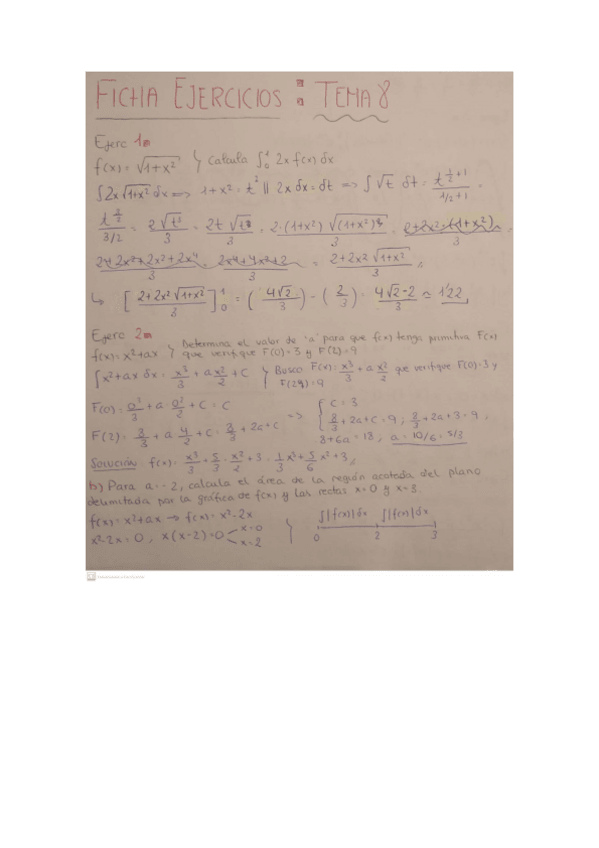 FICHA EJERCICIOS : TEMA 8
Ejerc 1
f(x) = √(1+x²) } calcula ∫₀¹ 2x f(x) dx
∫2x√(1+x²) dx => 1+x² = t || 2x dx = dt => ∫√t dt = t^(1/2+1)/(1/2+1) =
t^(3/2)/(3/2) = 2√t³/3 = 2t√t/3 = 2·(1+x²)√(1+x²)/3
= 2+2x²√(1+x²)/3
↳ [2+2x²√(1+x²)/3]₀¹ = (4√2/3) - (2/3) = 4√2-2/3 ≃ 1'22
Ejerc 2
f(x) = x²+ax } Determina el valor de 'a' para que f(x) tenga primitiva F(x)
que verifique F(0)=3 y F(2)=9
∫x²+ax dx = x³/3 + a x²/2 + C } Busco F(x) = x³/3 + a x²/2 que verifique F(0)=3 y
F(2)=9
F(0) = 0³/3 + a·0²/2 + C = C => { C = 3
F(2) = 8/3 + a 4/2 + C = 8/3 + 2a + C { 8/3 + 2a + C = 9 ; 8/3 + 2a + 3 = 9 ;
8+6a = 18 ; a = 10/6 = 5/3
Solución: f(x) = x³/3 + 5/3 · x²/2 + 3 = 1/3 x³ + 5/6 x² + 3
b) Para a=-2, calcula el área de la región acotada del plano
delimitada por la gráfica de f(x) y las rectas x=0 y x=3.
f(x) = x²+ax → f(x) = x²-2x
x²-2x = 0 ; x(x-2)=0 x=0 x=2
∫|f(x)|dx ∫|f(x)|dx
0 2 3